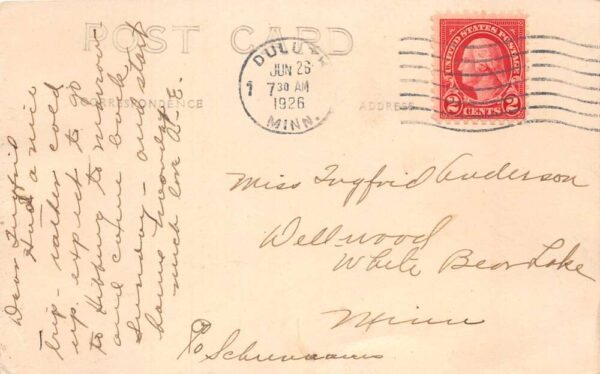 POST CARD
CORRESPONDENCE
ADDRESS
DULUTH
JUN 26
7 30 AM
1926
MINN.
1
UNITED STATES POSTAGE
2 CENTS 2
Dear Ingfrid
Had a nice
trip - rather cold
up. expect to go
to Hibbing to morrow -
and come back
Sunday - and start
home Monday.
much love A. E.
Miss Ingfrid Anderson
Wellwood
White Bear Lake
Minn